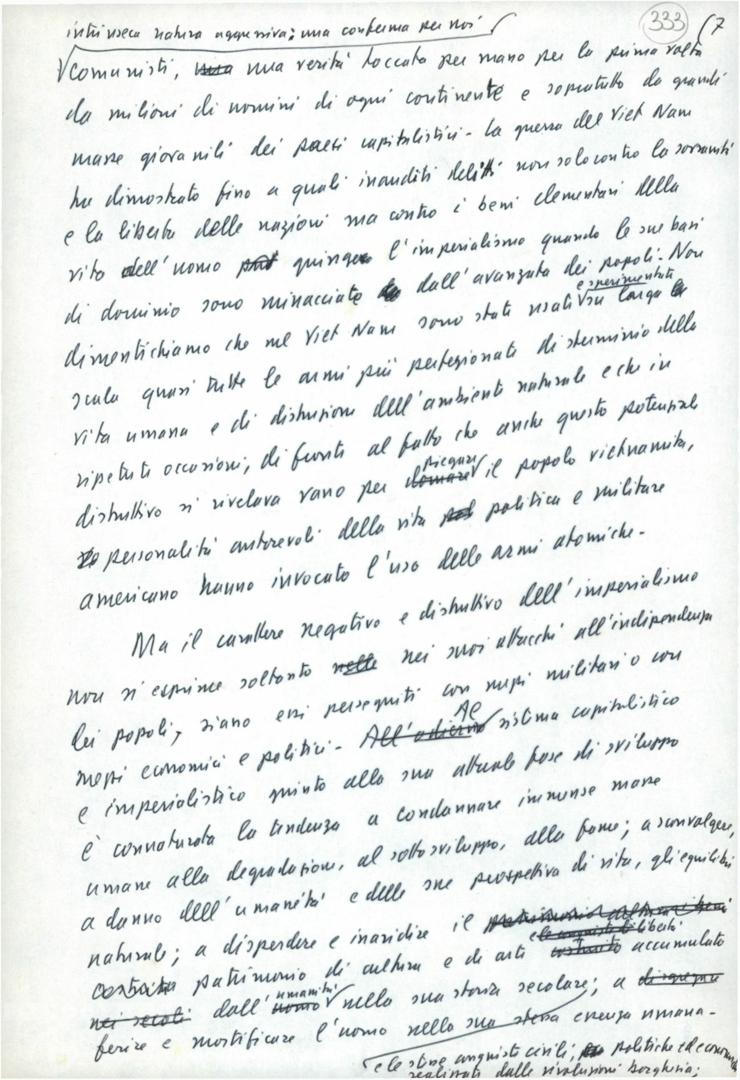 333 7
intrinseca natura aggressiva: una conferma per noi
comunisti, una verità toccata per mano per la prima volta
da milioni di uomini di ogni continente e sopratutto da grandi
masse giovanili dei paesi capitalistici - La guerra del Viet Nam
ha dimostrato fino a quali inauditi delitti non solo contro la sovranità
e la libertà delle nazioni ma contro i beni elementari della
vita dell'uomo giunga l'imperialismo quando le sue basi
di dominio sono minacciate dall'avanzata dei popoli - Non
e sperimentate
dimentichiamo che nel Viet Nam sono state usate su larga
scala quasi tutte le armi più perfezionate di sterminio della
vita umana e di distruzione dell'ambiente naturale e che in
ripetute occasioni, di fronte al fatto che anche questo potenziale
piegare
distruttivo si rivelava vano per domare il popolo vietnamita,
personalità autorevoli della vita politica e militare
americana hanno invocato l'uso delle armi atomiche -
Ma il carattere negativo e distruttivo dell'imperialismo
non si esprime soltanto nelle nei suoi attacchi all'indipendenza
dei popoli, siano essi perseguiti con mezzi militari o con
Al
mezzi economici e politici - All'odierno sistema capitalistico
e imperialistico giunto alla sua attuale fase di sviluppo
è connaturata la tendenza a condannare immense masse
umane alla degradazione, al sottosviluppo, alla fame; a sconvolgere,
a danno dell'umanità e delle sue prospettive di vita, gli equilibri
naturali; a disperdere e inaridire il patrimonio
e le conquiste di libertà
patrimonio di cultura e di arte costruito accumulato
umanità
nei secoli dall'uomo nella sua storia secolare; a
ferire e mortificare l'uomo nella sua stessa essenza umana -
e le stesse conquiste civili, politiche ed economiche
realizzate dalle rivoluzioni borghesi;